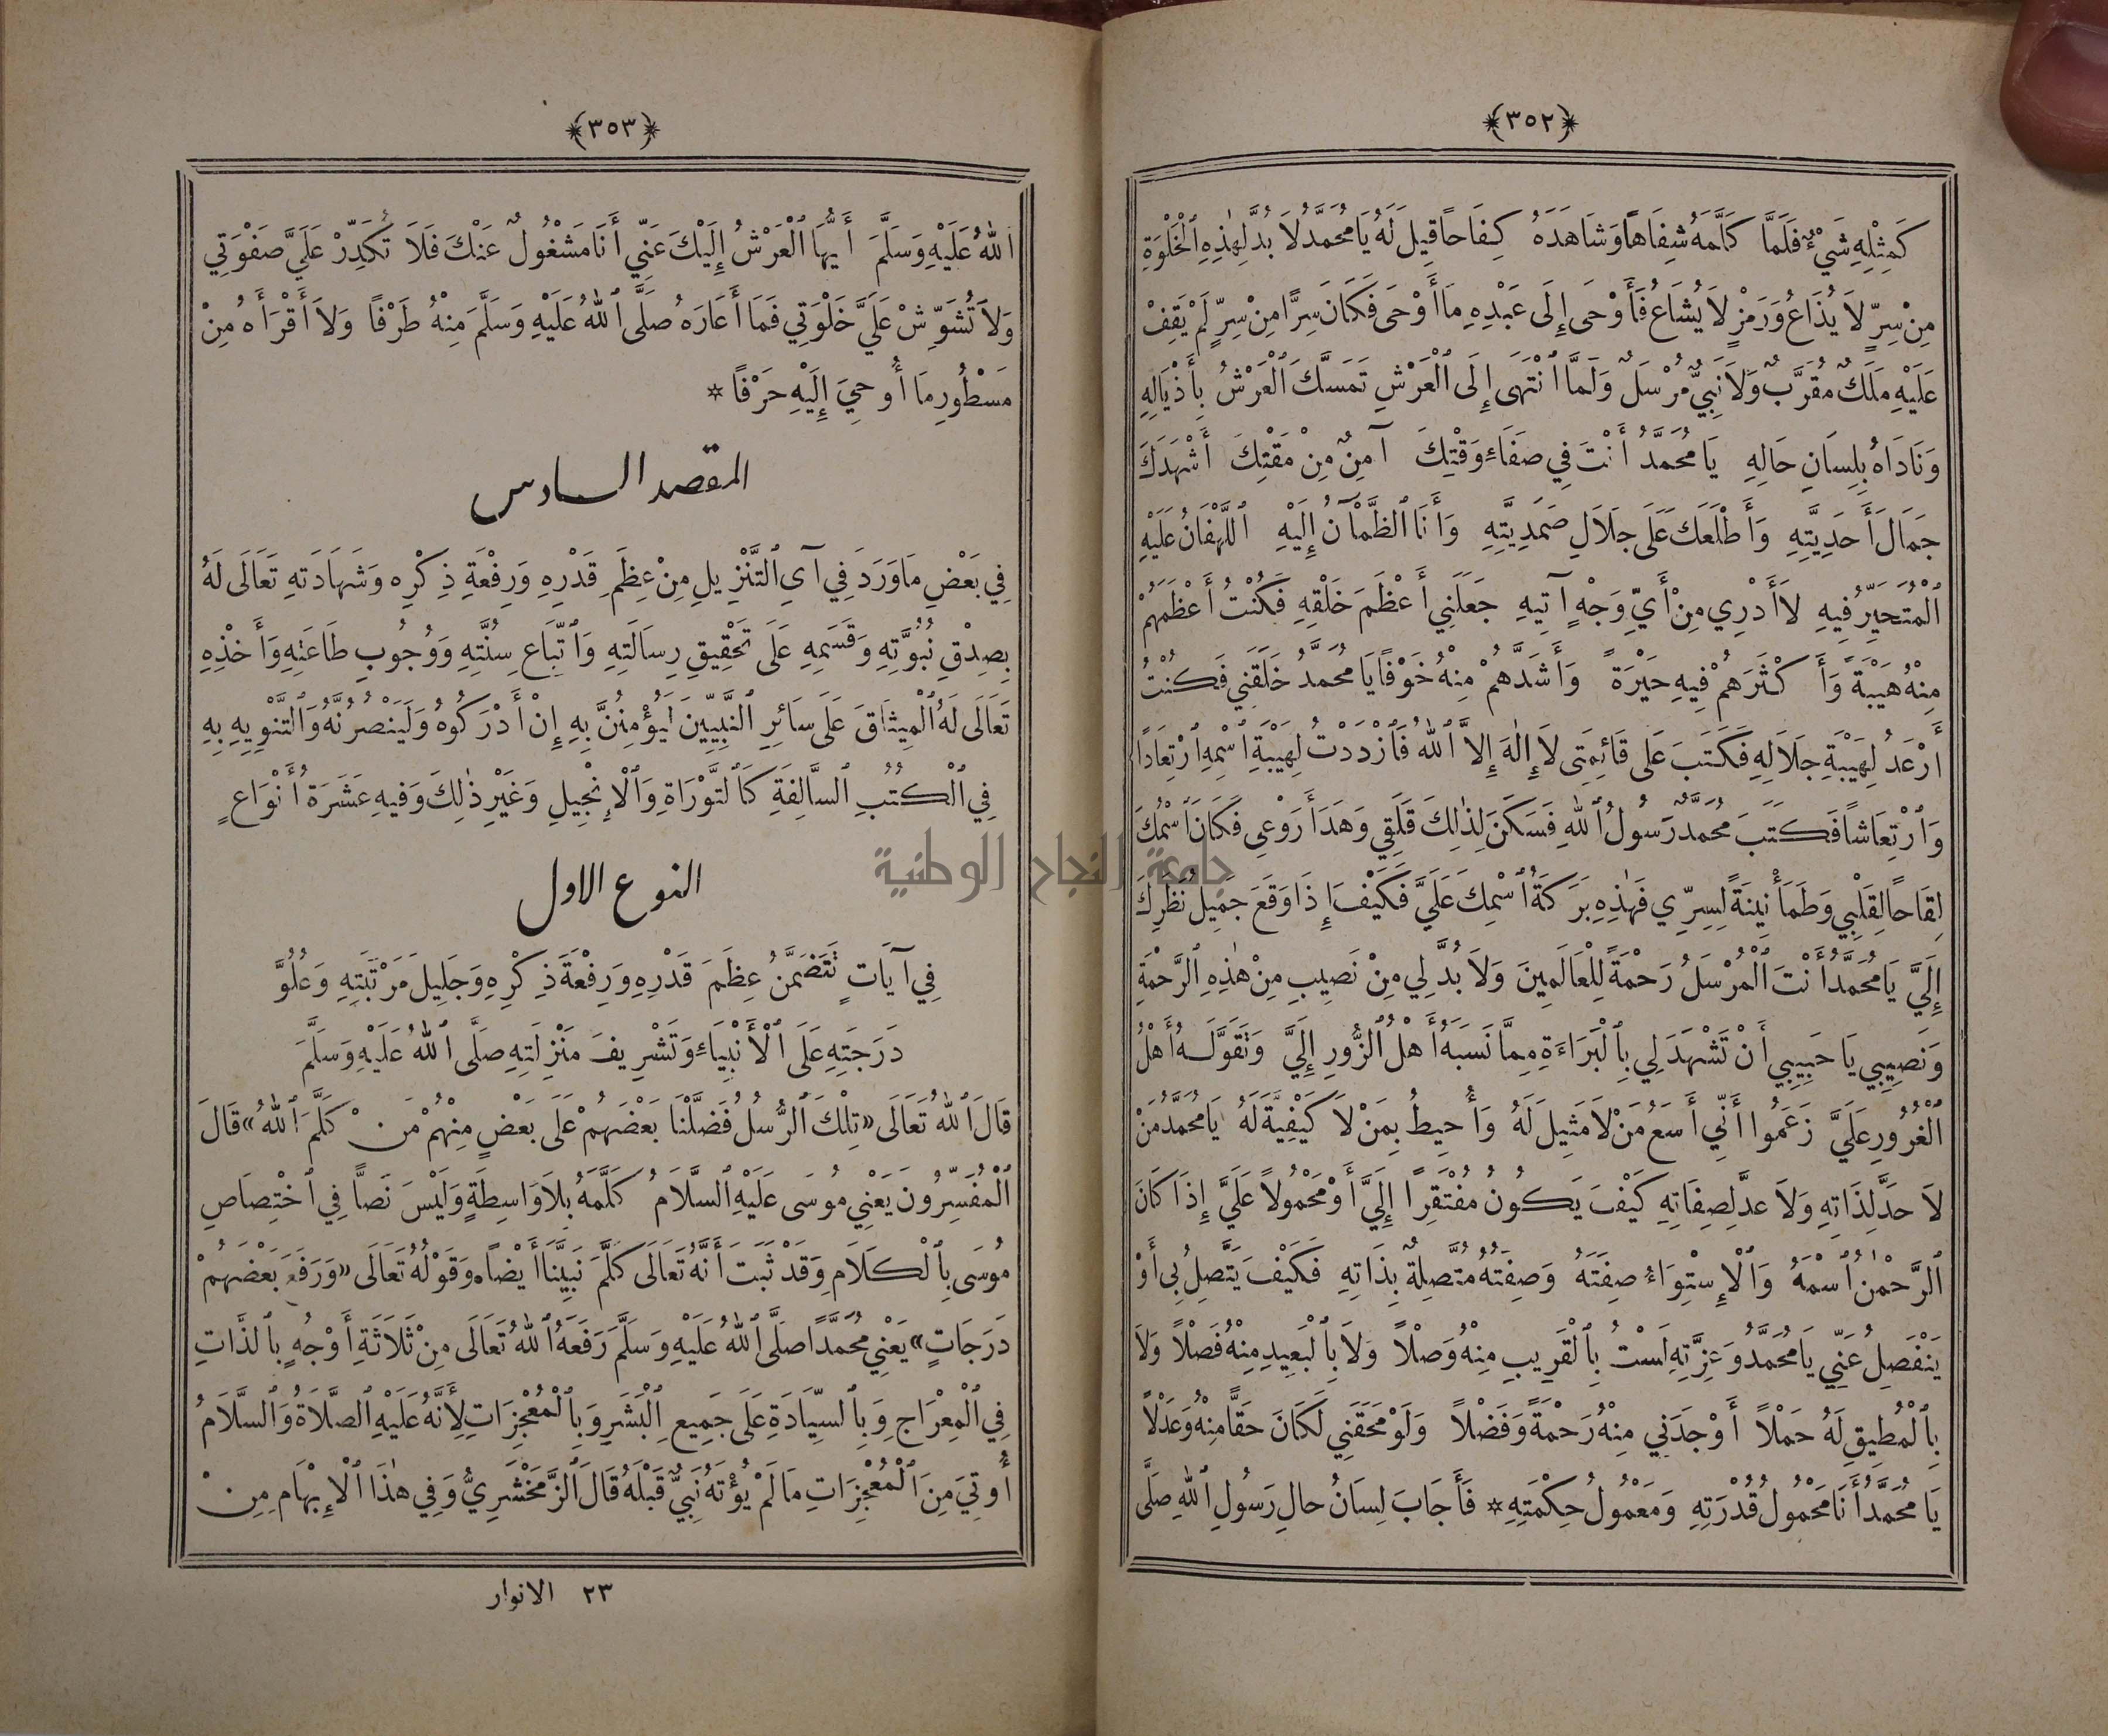 ﴿٣٥٢﴾
كَمِثْلِهِ شَيْءٌ فَلَمَّا كَلَّمَهُ شِفَاهًا وَشَاهَدَهُ كِفَاحًا قِيلَ لَهُ يَا مُحَمَّدُ لاَ بُدَّ لِهٰذِهِ ٱلْخَلْوَةِ
مِنْ سِرٍّ لاَ يُذَاعُ وَرَمْزٍ لاَ يُشَاعُ فَأَوْحَى إِلَى عَبْدِهِ مَا أَوْحَى فَكَانَ سِرًّا مِنْ سِرٍّ لَمْ يَقِفْ
عَلَيْهِ مَلَكٌ مُقَرَّبٌ وَلاَ نَبِيٌّ مُرْسَلٌ وَلَمَّا ٱنْتَهَى إِلَى ٱلْعَرْشِ تَمَسَّكَ ٱلْعَرْشُ بِأَذْيَالِهِ
وَنَادَاهُ بِلِسَانِ حَالِهِ يَا مُحَمَّدُ أَنْتَ فِي صَفَاءِ وَقْتِكَ آمِنٌ مِنْ مَقْتِكَ أَشْهَدَكَ
جَمَالَ أَحَدِيَّتِهِ وَأَطْلَعَكَ عَلَى جَلاَلِ صَمَدِيَّتِهِ وَأَنَا ٱلظَّمْآنُ إِلَيْهِ ٱللَّهْفَانُ عَلَيْهِ
ٱلْمُتَحَيِّرُ فِيهِ لاَ أَدْرِي مِنْ أَيِّ وَجْهٍ آتِيهِ جَعَلَنِي أَعْظَمَ خَلْقِهِ فَكُنْتُ أَعْظَمَهُمْ
مِنْهُ هَيْبَةً وَأَكْثَرَهُمْ فِيهِ حَيْرَةً وَأَشَدَّهُمْ مِنْهُ خَوْفًا يَا مُحَمَّدُ خَلَقَنِي فَكُنْتُ
أَرْعَدُ لِهَيْبَةِ جَلاَلِهِ فَكَتَبَ عَلَى قَائِمَتِي لاَ إِلٰهَ إِلاَّ ٱللهُ فَٱزْدَدْتُ لِهَيْبَةِ ٱسْمِهِ ٱرْتِعَادًا
وَٱرْتِعَاشًا فَكَتَبَ مُحَمَّدٌ رَسُولُ ٱللهِ فَسَكَنَ لِذٰلِكَ قَلَقِي وَهَدَأَ رَوْعِي فَكَانَ ٱسْمُكَ
لِقَاحًا لِقَلْبِي وَطُمَأْنِينَةً لِسِرِّي فَهٰذِهِ بَرَكَةُ ٱسْمِكَ عَلَيَّ فَكَيْفَ إِذَا وَقَعَ جَمِيلُ نَظَرِكَ
إِلَيَّ يَا مُحَمَّدُ أَنْتَ ٱلْمُرْسَلُ رَحْمَةً لِلْعَالَمِينَ وَلاَ بُدَّ لِي مِنْ نَصِيبٍ مِنْ هٰذِهِ ٱلرَّحْمَةِ
وَنَصِيبِي يَا حَبِيبِي أَنْ تَشْهَدَ لِي بِٱلْبَرَاءَةِ مِمَّا نَسَبَهُ أَهْلُ ٱلزُّورِ إِلَيَّ وَتَقَوَّلَهُ أَهْلُ
ٱلْغُرُورِ عَلَيَّ زَعَمُوا أَنِّي أَسَعُ مَنْ لاَ مَثِيلَ لَهُ وَأُحِيطُ بِمَنْ لاَ كَيْفِيَّةَ لَهُ يَا مُحَمَّدُ مَنْ
لاَ حَدَّ لِذَاتِهِ وَلاَ عَدَّ لِصِفَاتِهِ كَيْفَ يَكُونُ مُفْتَقِرًا إِلَيَّ أَوْ مَحْمُولاً عَلَيَّ إِذَا كَانَ
ٱلرَّحْمٰنُ ٱسْمَهُ وَٱلْإِسْتِوَاءُ صِفَتَهُ وَصِفَتُهُ مُتَّصِلَةٌ بِذَاتِهِ فَكَيْفَ يَتَّصِلُ بِي أَوْ
يَنْفَصِلُ عَنِّي يَا مُحَمَّدُ وَعِزَّتِهِ لَسْتُ بِٱلْقَرِيبِ مِنْهُ وَصْلاً وَلاَ بِٱلْبَعِيدِ مِنْهُ فَصْلاً وَلاَ
بِٱلْمُطِيقِ لَهُ حَمْلاً أَوْجَدَنِي مِنْهُ رَحْمَةً وَفَضْلاً وَلَوْ مَحَقَنِي لَكَانَ حَقًّا مِنْهُ وَعَدْلاً
يَا مُحَمَّدُ أَنَا مَحْمُولُ قُدْرَتِهِ وَمَعْمُولُ حِكْمَتِهِ * فَأَجَابَ لِسَانُ حَالِ رَسُولِ ٱللهِ صَلَّى
﴿٣٥٣﴾
ٱللهُ عَلَيْهِ وَسَلَّمَ أَيُّهَا ٱلْعَرْشُ إِلَيْكَ عَنِّي أَنَا مَشْغُولٌ عَنْكَ فَلاَ تُكَدِّرْ عَلَيَّ صَفْوَتِي
وَلاَ تُشَوِّشْ عَلَيَّ خَلْوَتِي فَمَا أَعَارَهُ صَلَّى ٱللهُ عَلَيْهِ وَسَلَّمَ مِنْهُ طَرْفًا وَلاَ أَقْرَأَهُ مِنْ
مَسْطُورِ مَا أُوحِيَ إِلَيْهِ حَرْفًا *
المقصد السادس
فِي بَعْضِ مَا وَرَدَ فِي آيِ ٱلتَّنْزِيلِ مِنْ عِظَمِ قَدْرِهِ وَرِفْعَةِ ذِكْرِهِ وَشَهَادَتِهِ تَعَالَى لَهُ
بِصِدْقِ نُبُوَّتِهِ وَقَسَمِهِ عَلَى تَحْقِيقِ رِسَالَتِهِ وَٱتِّبَاعِ سُنَّتِهِ وَوُجُوبِ طَاعَتِهِ وَأَخْذِهِ
تَعَالَى لَهُ ٱلْمِيثَاقَ عَلَى سَائِرِ ٱلنَّبِيِّينَ لَيُؤْمِنُنَّ بِهِ إِنْ أَدْرَكُوهُ وَلَيَنْصُرُنَّهُ وَٱلتَّنْوِيهِ بِهِ
فِي ٱلْكُتُبِ ٱلسَّالِفَةِ كَٱلتَّوْرَاةِ وَٱلْإِنْجِيلِ وَغَيْرِ ذٰلِكَ وَفِيهِ عَشَرَةُ أَنْوَاعٍ
النوع الاول
فِي آيَاتٍ تَتَضَمَّنُ عِظَمَ قَدْرِهِ وَرِفْعَةَ ذِكْرِهِ وَجَلِيلَ مَرْتَبَتِهِ وَعُلُوَّ
دَرَجَتِهِ عَلَى ٱلْأَنْبِيَاءِ وَتَشْرِيفَ مَنْزِلَتِهِ صَلَّى ٱللهُ عَلَيْهِ وَسَلَّمَ
قَالَ ٱللهُ تَعَالَى «تِلْكَ ٱلرُّسُلُ فَضَّلْنَا بَعْضَهُمْ عَلَى بَعْضٍ مِنْهُمْ مَنْ كَلَّمَ ٱللهُ» قَالَ
ٱلْمُفَسِّرُونَ يَعْنِي مُوسَى عَلَيْهِ ٱلسَّلاَمُ كَلَّمَهُ بِلاَ وَاسِطَةٍ وَلَيْسَ نَصًّا فِي ٱخْتِصَاصِ
مُوسَى بِٱلْكَلاَمِ وَقَدْ ثَبَتَ أَنَّهُ تَعَالَى كَلَّمَ نَبِيَّنَا أَيْضًا وَقَوْلُهُ تَعَالَى «وَرَفَعَ بَعْضَهُمْ
دَرَجَاتٍ» يَعْنِي مُحَمَّدًا صَلَّى ٱللهُ عَلَيْهِ وَسَلَّمَ رَفَعَهُ ٱللهُ تَعَالَى مِنْ ثَلاَثَةِ أَوْجُهٍ بِٱلذَّاتِ
فِي ٱلْمِعْرَاجِ وَبِٱلسِّيَادَةِ عَلَى جَمِيعِ ٱلْبَشَرِ وَبِٱلْمُعْجِزَاتِ لِأَنَّهُ عَلَيْهِ ٱلصَّلاَةُ وَٱلسَّلاَمُ
أُوتِيَ مِنَ ٱلْمُعْجِزَاتِ مَا لَمْ يُؤْتَهُ نَبِيٌّ قَبْلَهُ قَالَ ٱلزَّمَخْشَرِيُّ وَفِي هٰذَا ٱلْإِبْهَامِ مِنْ
٢٣ الانوار
جامعة النجاح الوطنية